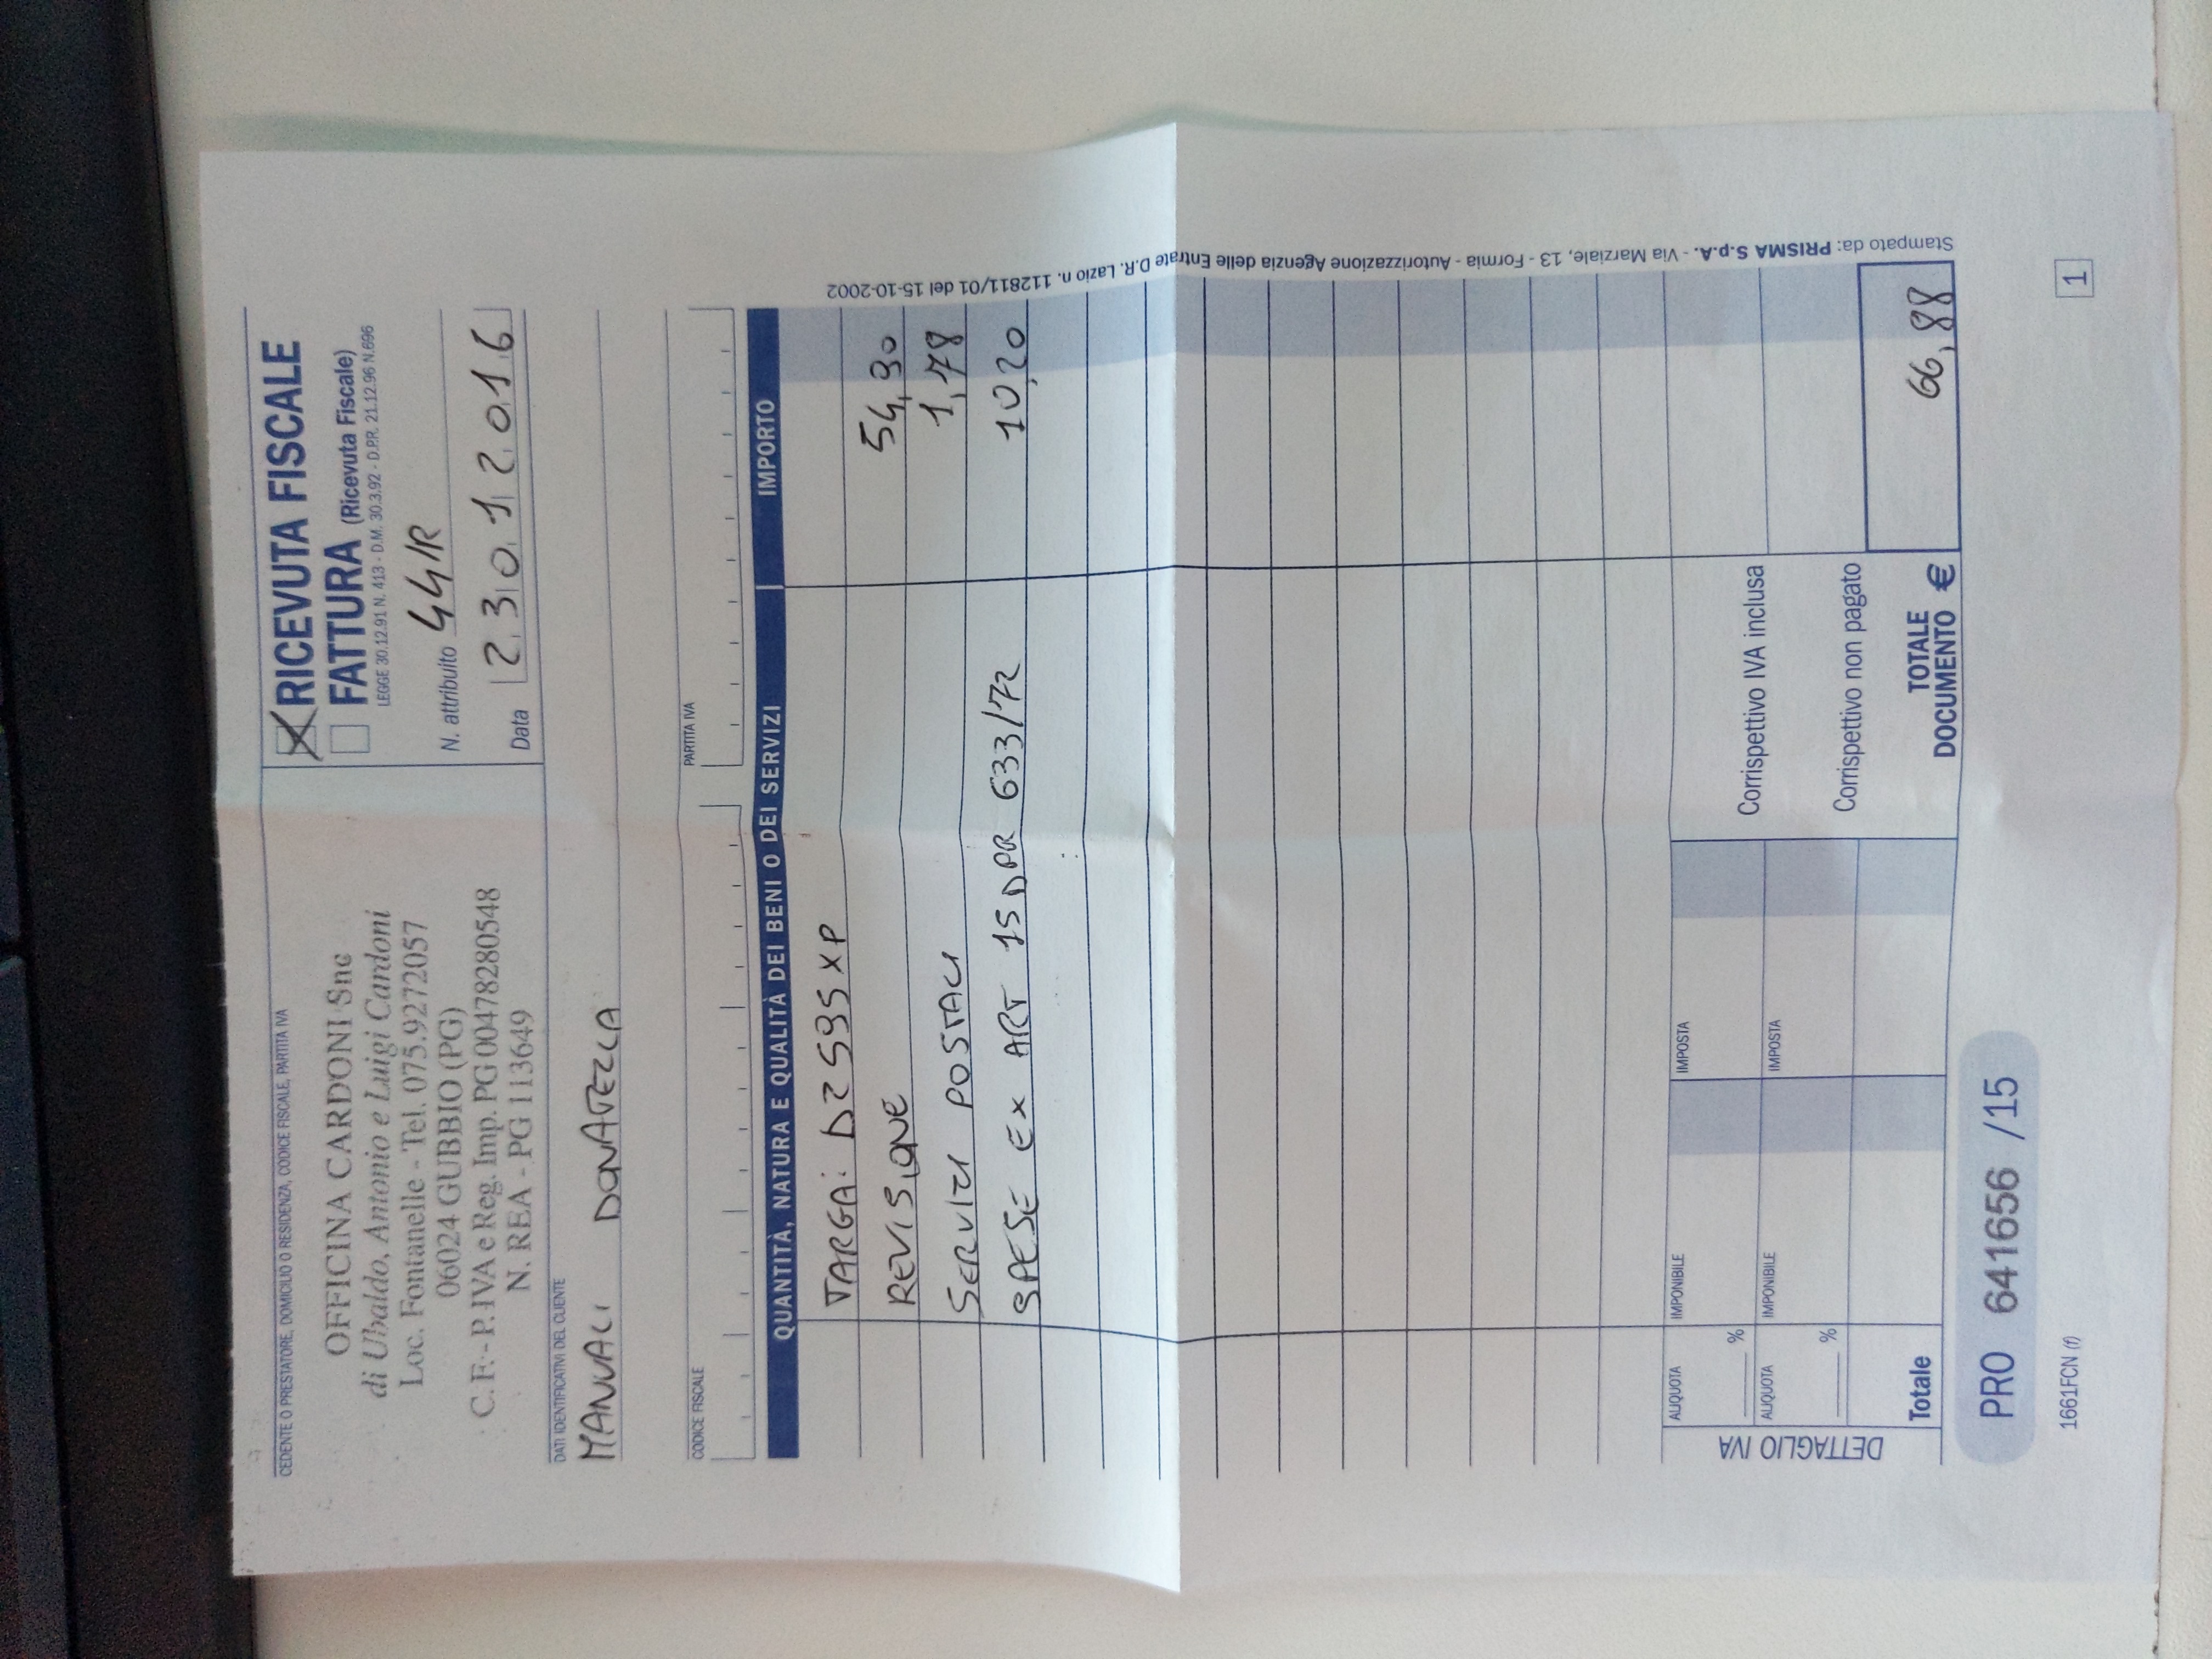 CEDENTE O PRESTATORE, DOMICILIO O RESIDENZA, CODICE FISCALE, PARTITA IVA
OFFICINA CARDONI Snc
di Ubaldo, Antonio e Luigi Cardoni
Loc. Fontanelle - Tel. 075.9272057
06024 GUBBIO (PG)
C. F. - P. IVA e Reg. Imp. PG 00478280548
N. REA - PG 113649
RICEVUTA FISCALE
FATTURA (Ricevuta Fiscale)
LEGGE 30.12.91 N. 413 - D.M. 30.3.92 - D.P.R. 21.12.96 N.696
N. attribuito 44/R
Data 23012016
DATI IDENTIFICATIVI DEL CLIENTE
MANUALI DONATELLA
CODICE FISCALE PARTITA IVA
QUANTITÀ, NATURA E QUALITÀ DEI BENI O DEI SERVIZI IMPORTO
TARGA: DZ595XP
REVISIONE 54,90
SERVIZI POSTALI 1,78
SPESE EX ART 15 DPR 633/72 10,20
DETTAGLIO IVA
ALIQUOTA IMPONIBILE IMPOSTA
%
Corrispettivo IVA inclusa
ALIQUOTA IMPONIBILE IMPOSTA
%
Corrispettivo non pagato
Totale
TOTALE DOCUMENTO € 66,88
PRO 641656 /15
1661FCN (f)
1
Stampato da: PRISMA S.p.A. - Via Marziale, 13 - Formia - Autorizzazione Agenzia delle Entrate D.R. Lazio n. 112811/01 del 15-10-2002